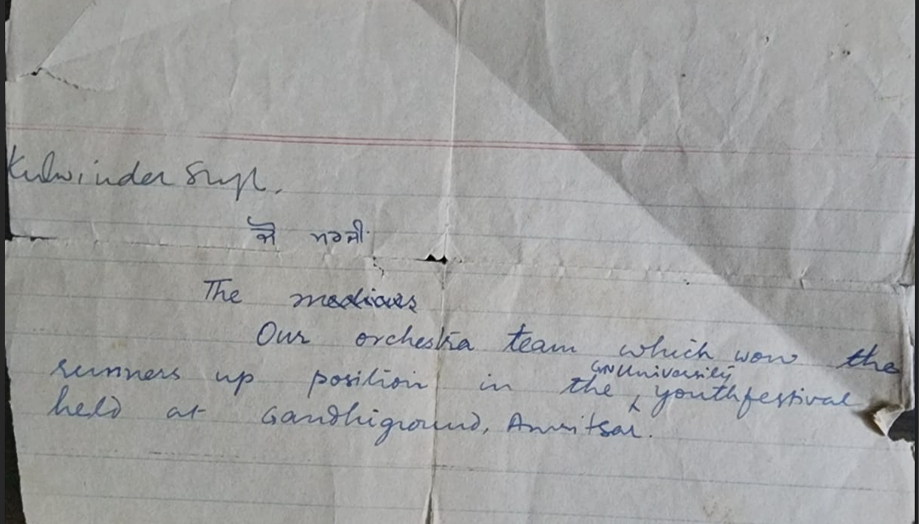 Kulwinder Singh.
The medicos
Our orchestra team which won the
runners up position in the GNUniversity youthfestival
held at Gandhiground, Amritsar.